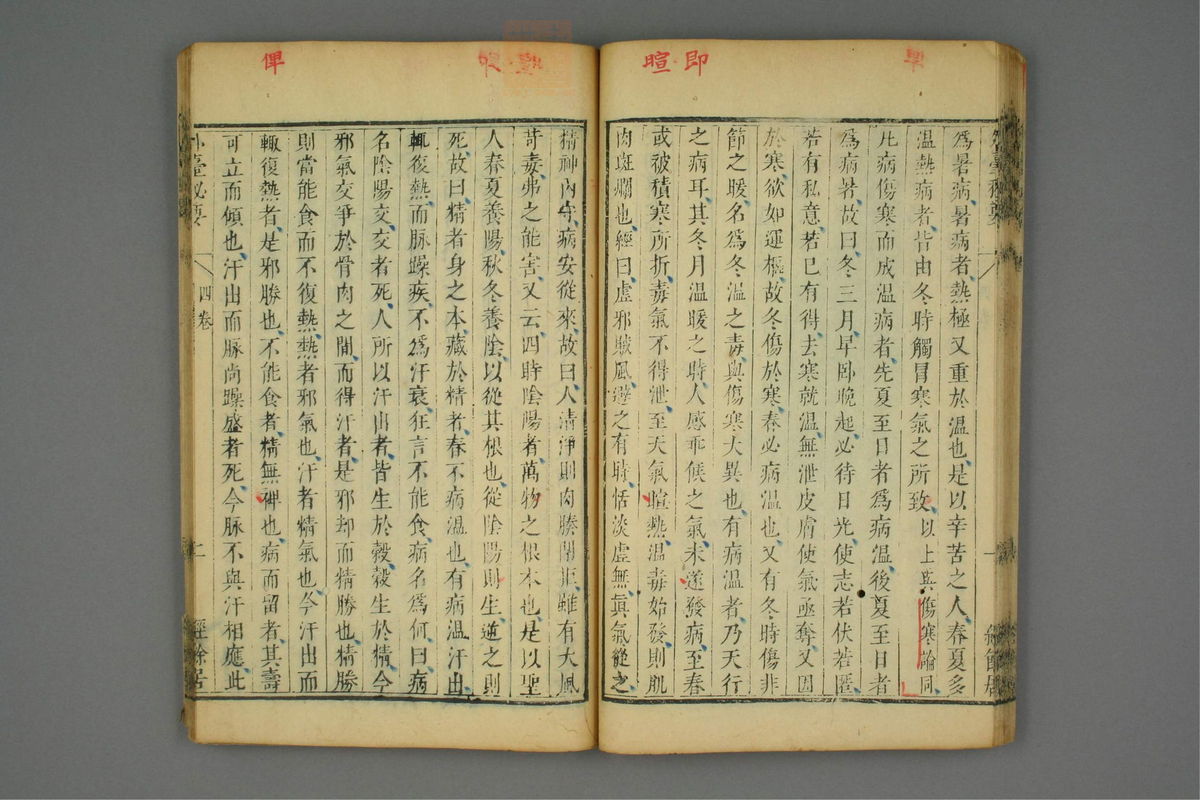 卑
即
暄
俾
為暑病暑病者熱極又重於温也是以辛苦之人春夏多
温熱病者皆由冬時觸冒寒氣之所致以上與傷寒論同
凡病傷寒而成温病者先夏至日者為病温後夏至日者
為病暑故曰冬三月早卧晚起必待日光使志若伏若匿
若有私意若已有得去寒就温無泄皮膚使氣亟奪又因
於寒欲如運樞故冬傷於寒春必病温也又有冬時傷非
節之暖名為冬温之毒與傷寒大異也有病温者乃天行
之病耳其冬月温暖之時人感乖候之氣未遂發病至春
或被積寒所折毒氣不得泄至天氣暄熱温毒始發則肌
肉斑爛也經曰虚邪賊風避之有時恬淡虚無真氣從之
精神內守病安從來故曰人清淨則肉腠閉拒雖有大風
苛毒弗之能害又云四時陰陽者萬物之根本也是以聖
人春夏養陽秋冬養陰以從其根也從陰陽則生逆之則
死故曰精者身之本藏於精者春不病温也有病温汗出
輒復熱而脉躁疾不為汗衰狂言不能食病名為何曰病
名陰陽交交者死人所以汗出者皆生於穀穀生於精今
邪氣交爭於骨肉之間而得汗者是邪却而精勝也精勝
則當能食而不復熱熱者邪氣也汗者精氣也今汗出而
輒復熱者是邪勝也不能食者精無裨也病而留者其壽
可立而傾也汗出而脉尚躁盛者死今脉不與汗相應此
外臺秘要
四卷
二
經餘居